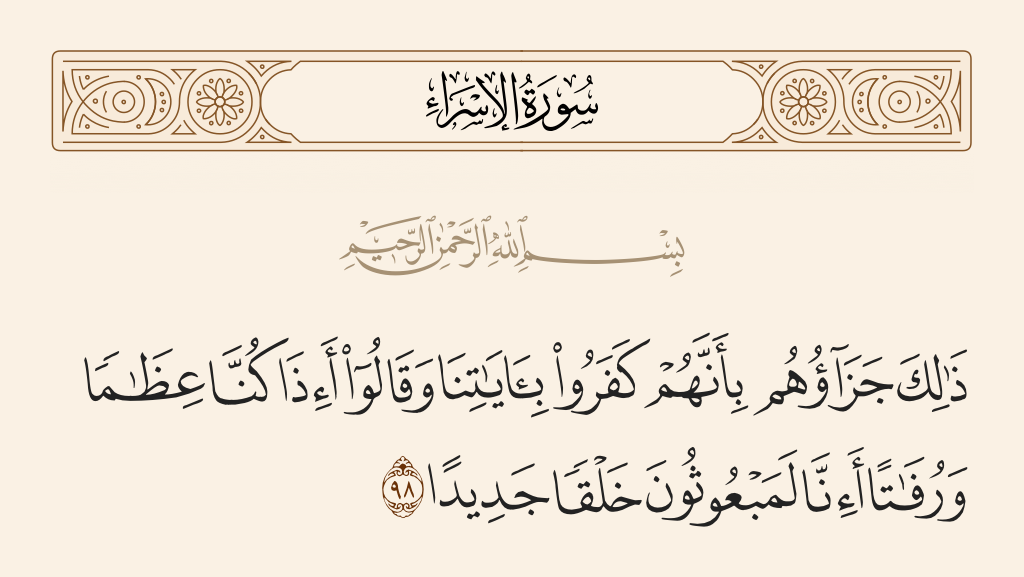 سُورَةُ الإِسْرَاءِ
بِسْمِ ٱللَّهِ ٱلرَّحْمَٰنِ ٱلرَّحِيمِ
ذَٰلِكَ جَزَآؤُهُم بِأَنَّهُمْ كَفَرُوا۟ بِـَٔايَـٰتِنَا وَقَالُوٓا۟ أَءِذَا كُنَّا عِظَـٰمًا
وَرُفَـٰتًا أَءِنَّا لَمَبْعُوثُونَ خَلْقًا جَدِيدًا ٩٨